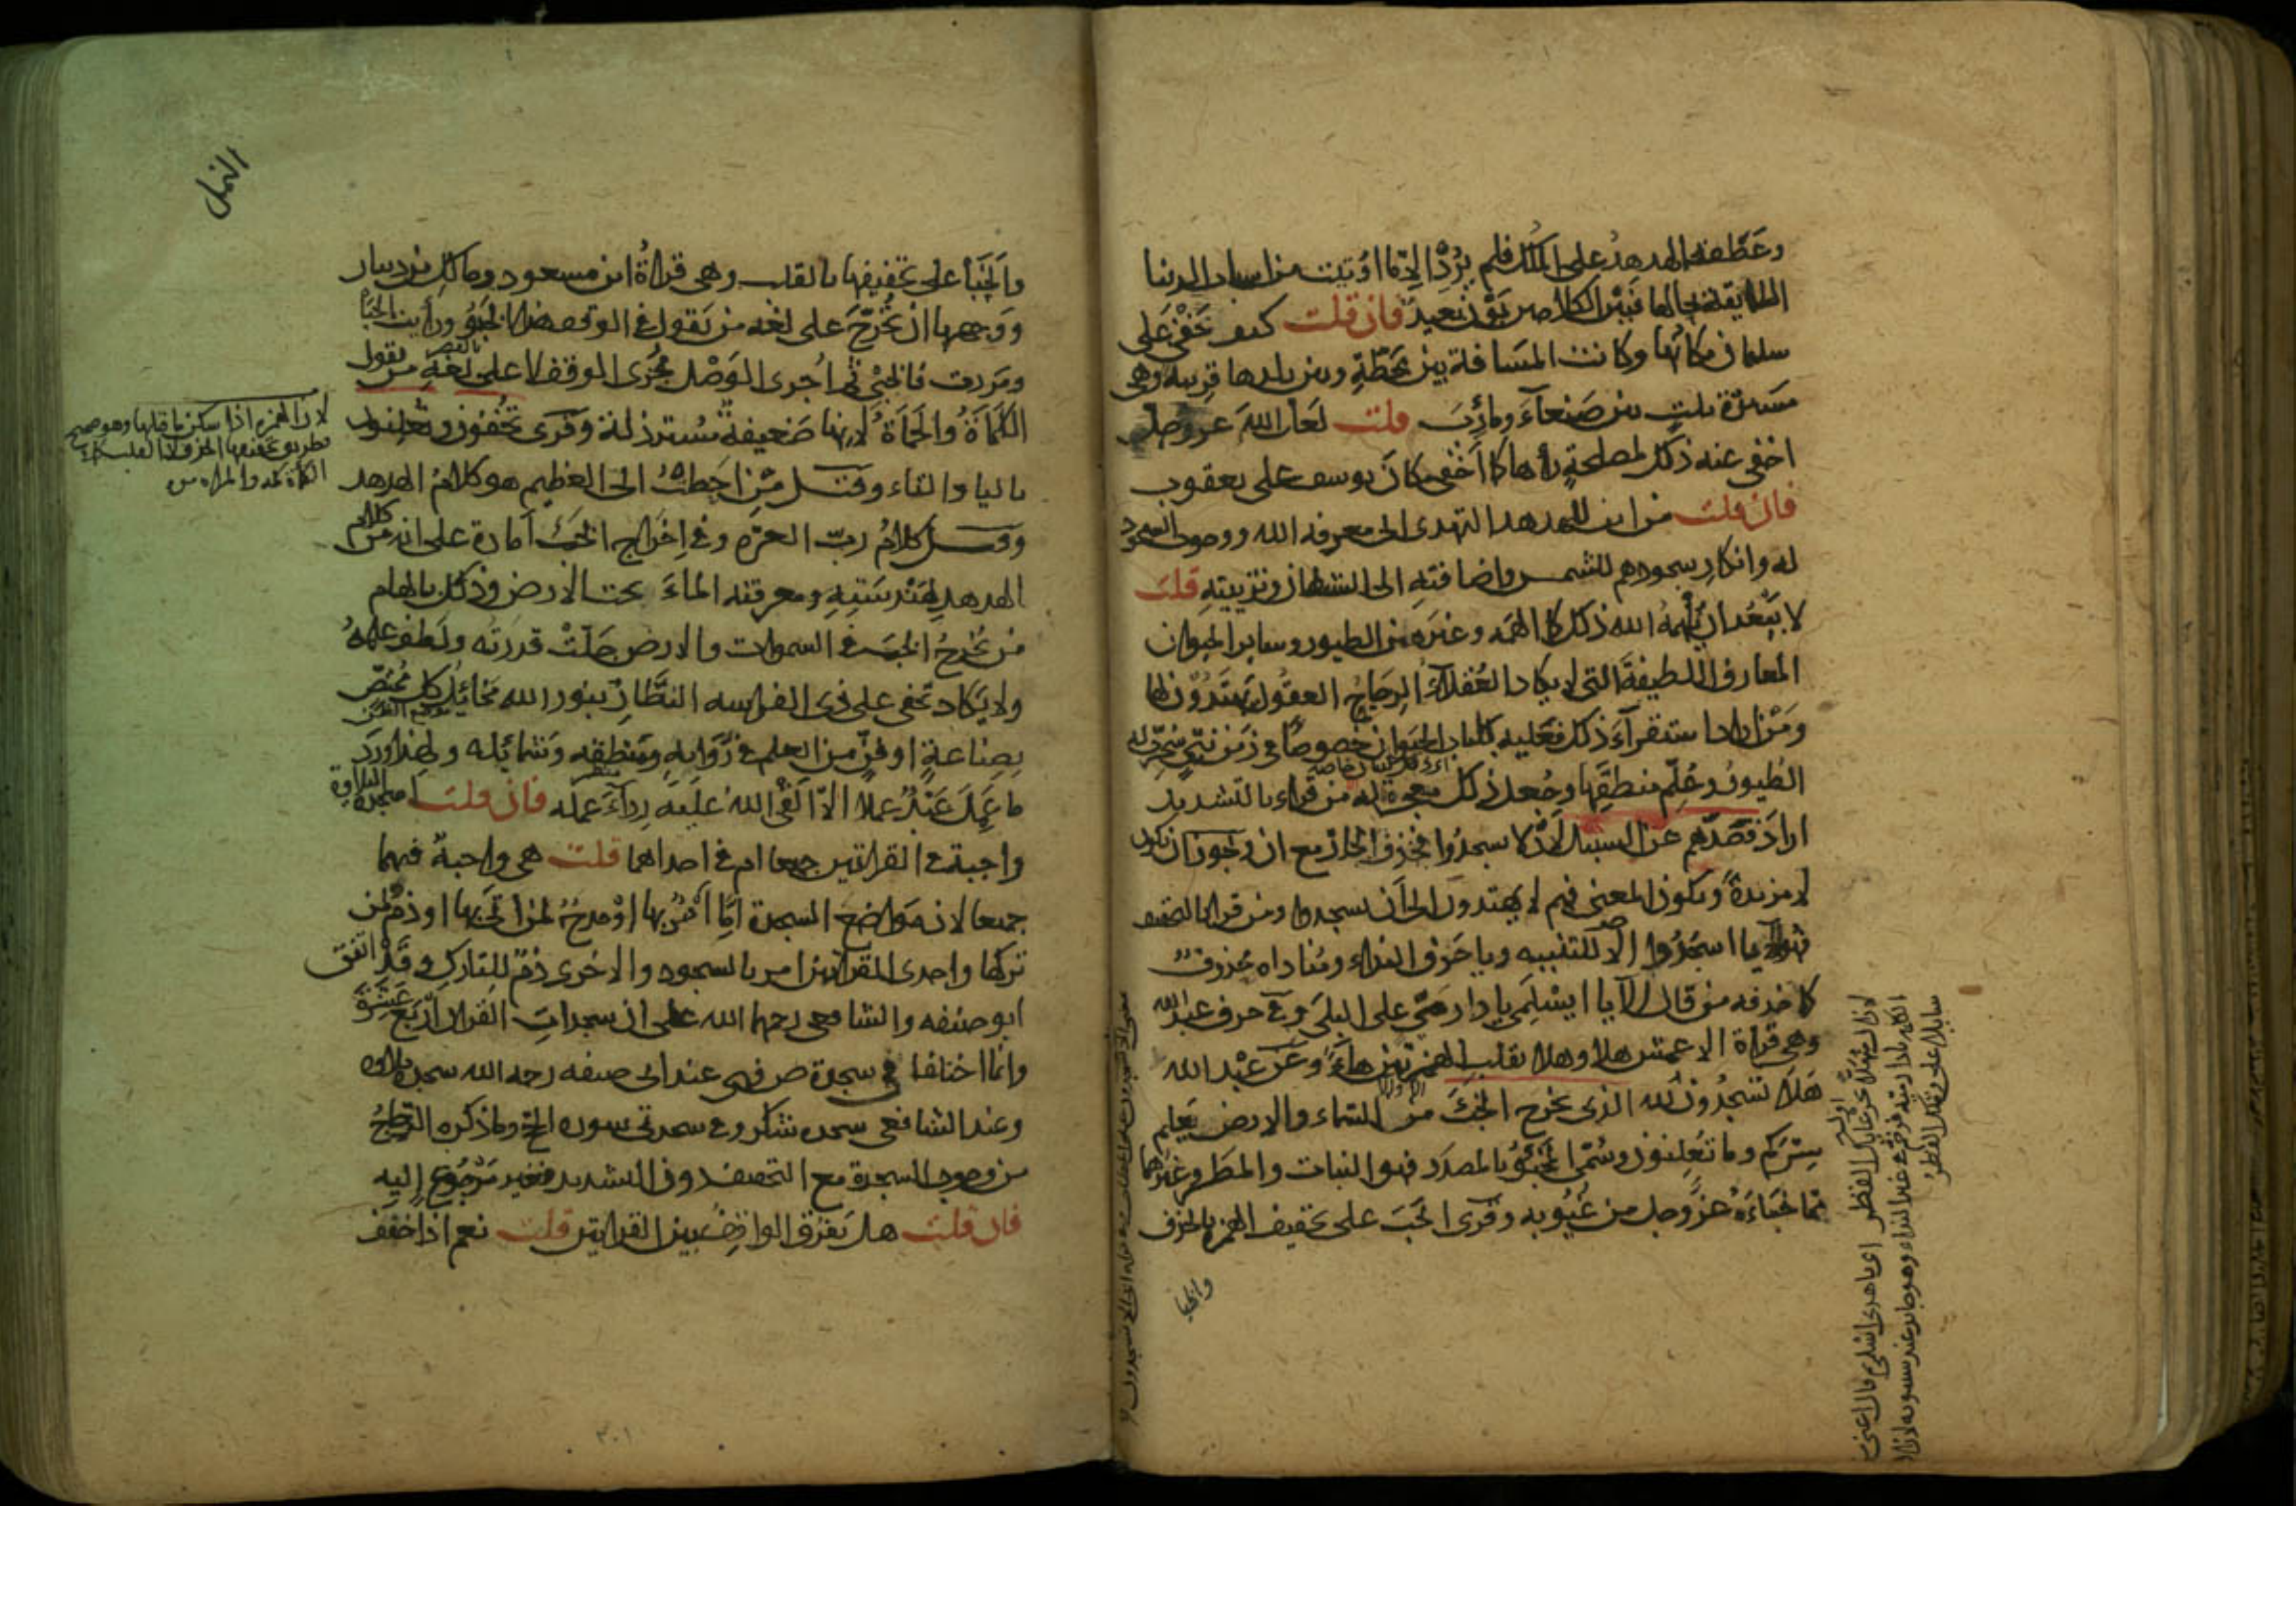 وعَطَفه الهدهدُ على المُلك فلم يُرِد الا ما اُوتيت من اسباب الدنيا
اللايقة بحالها فبَيْن الكلامين بَوْنٌ بَعيدٌ فان قلت كيف خَفِيَ على
سليمان مكانُها وكانت المسَافة بين مَحَطّهِ وبين بلدها قريبة وهي
مسيرة ثلث بين صَنعاءَ ومَأرِبَ قلت لعَل اللهَ عز وجل
اخفى عنه ذلك لمصلحةٍ رأها كما اَخْفى مكانَ يوسف على يعقوب
فان قلت من اين للهدهد التهدى الى معرفة الله ووجوب السجود
له وانكارِ سجودهم للشمس واضافتهِ الى الشيطان وتزيينهِ قلت
لا يَبْعُد ان يُلْهِمَهُ الله ذلك كما الهَمَه وغيرَه من الطيور وساير الحيوان
المعارفَ اللطيفةَ التي لا يكاد العُقلآءُ الرِجَاحُ العقُولِ يَهتدُون لها
ومَنْ اراد استقرآءَ ذلك فعَليه بكتاب الحيَوان خصوصًا في زمن نبىٍ سُخّرت له
الطُيورُ وعُلِّم منطقَها وجُعل ذلك معجزة له من قراء بالتشديد
اراد فصَدّهم عن السبيل لئَلا يسجدُوا فحُذِف الجار مع ان ويجوز ان يكون
لا مزيدةً ويكون المعنى فهم لا يهتدون الى اَن يسجدوا ومن قرا بالتخفيف
فهو اَلا يا اسجُدُوا الا للتنبيه ويا حَرف النداء ومُناداه محذوفٌ
كما حذفه من قال اَلا يا ايسْلَمِى يا دارَ مَىّ على البِلَى وفي حرف عبد الله
وهي قراة الاعمش هلا وهلا بقلب الهمزتين هاءً وعَن عبْد الله
هَلا تسجُدُون لله الذى يخرج الخبْءَ من السماء والارض يَعلم
سِرَّكم وما تُعلِنون وسُمّى المَخْبُوُّ بالمصدَر فهو النبات والمطَر وغيرَهما
مما خَبَاءَهُ عزَّ وجل من غُيُوبه وقُرِئ الخَبَ على تخفيف الهمزة بالحذف
والخبا
النمل
والخَبَا على تخفيفها بالقلب وهي قراءةُ ابن مسعود ومالك بن دينار
ووجهها ان تُخَرَّجَ على لغة من يَقول في الوقف هذا الخَبُو ورأيت الخَبَا
ومَررت بالخبى ثم اُجرى الوَصْل مُجْرَى الوقف لا على لُغةِ من يقول
الكَمَاةُ والحَمَاةُ لاِنها ضَعيفةٌ مُسْترذلة وقُرِى تُخفون وتُعلنون
باليا والتاء وقيل من اَحَطتُ الى العظيم هو كلامُ الهدهد
وقيل كلامُ ربّ العزّة وفي اِخرَاج الخَبْءِ اَمارة على انه من كلام
الهدهد لهَنْدسَتِهِ ومعرفته الماءَ تحت الارض وذلك بالهام
من يُخرجُ الخبَ في السموات والارض جَلّتْ قدرَتُه ولَطف علمُهُ
ولا يَكاد تخفى على ذى الفراسه النَظّارِ بنور الله مَخائِل كل مُختصٍّ
بصِناعةٍ او فنٍّ من العلم في رُوَائهِ ومَنطقِه وشمائِله ولهذا وَرَدَ
ما عَمِلَ عَبْدٌ عملا الّا اَلْقَى اللهُ عليَه رِدآءَ عمله فان قلت اسجدة التلاوة
واجبة في القراتين جميعا ام في احداهما قلت هي واجبةٌ فيهما
جميعا لان مَوَاضع السجدة اِمّا اَمْرٌ بها اوْ مدحٌ لمن اَتى بها او ذمّ لمن
تركها واحدى القراتين امر بالسجود والاخرى ذمّ للتارك وقد اتفق
ابو حنيفه والشافعي رحمهما الله على ان سجدات القران اَرْبَعَ عَشْرَةَ
وانما اختلفا في سجدة ص فهي عند ابى حنيفه رحمه الله سجدة تلاوة
وعند الشافعي سجدة شكر وفي سجدتى سورة الحج وما ذكره الزجّاجُ
من وجوب السجدة مع التخفيف دون التشديد فغير مَرْجُوع اِليه
فان قلت هل يَفرُق الواقِفُ بين القراتين قلت نعم اذا خفف
لان الهمزة اذا سكن ما قبلها وهو صحيح
فطريق تخفيفها الحذف لا القلب كذلك
٣٠١